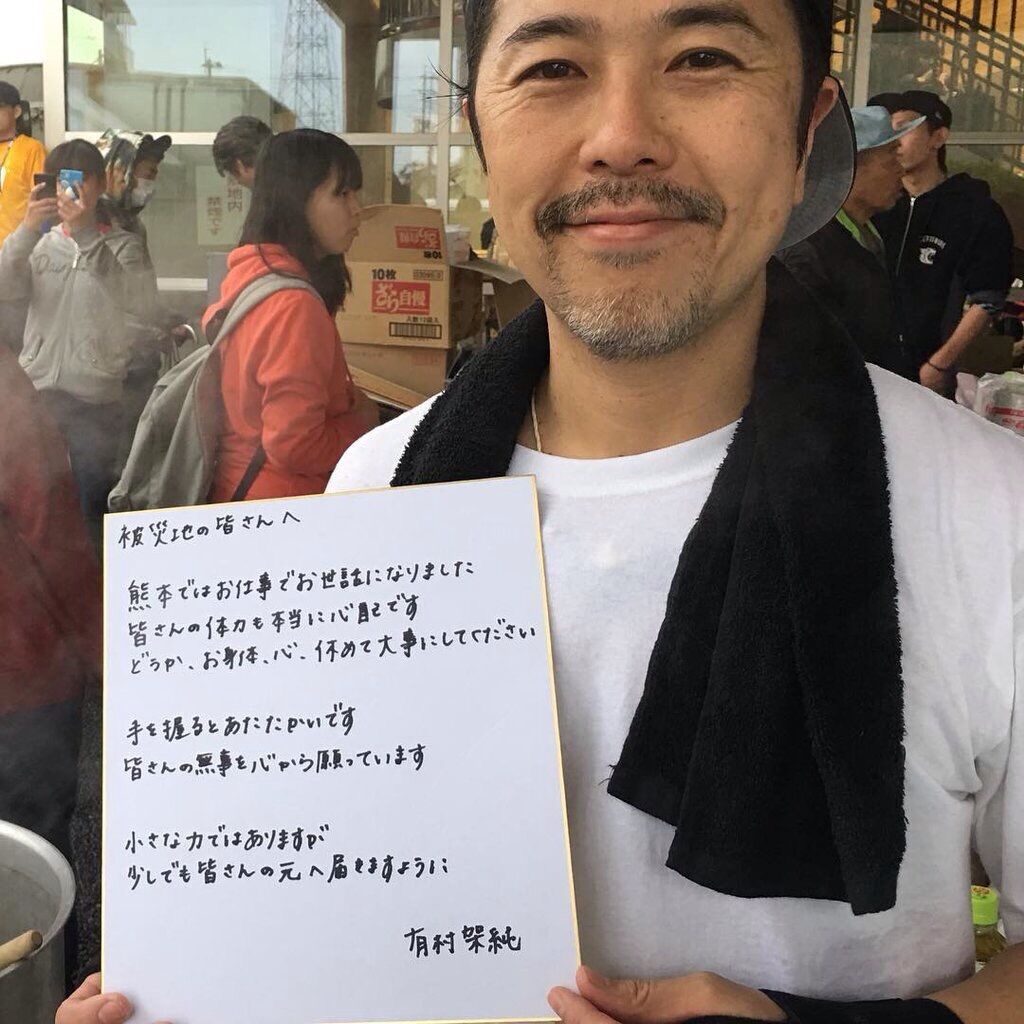 被災地の皆さんへ
熊本ではお仕事でお世話になりました
皆さんの体力も本当に心配です
どうか、お身体、心、休めて大事にしてください
手を握るとあたたかいです
皆さんの無事を心から願っています
小さな力ではありますが
少しでも皆さんの元へ届きますように
有村架純
地内
禁煙です
10枚
ざら自慢